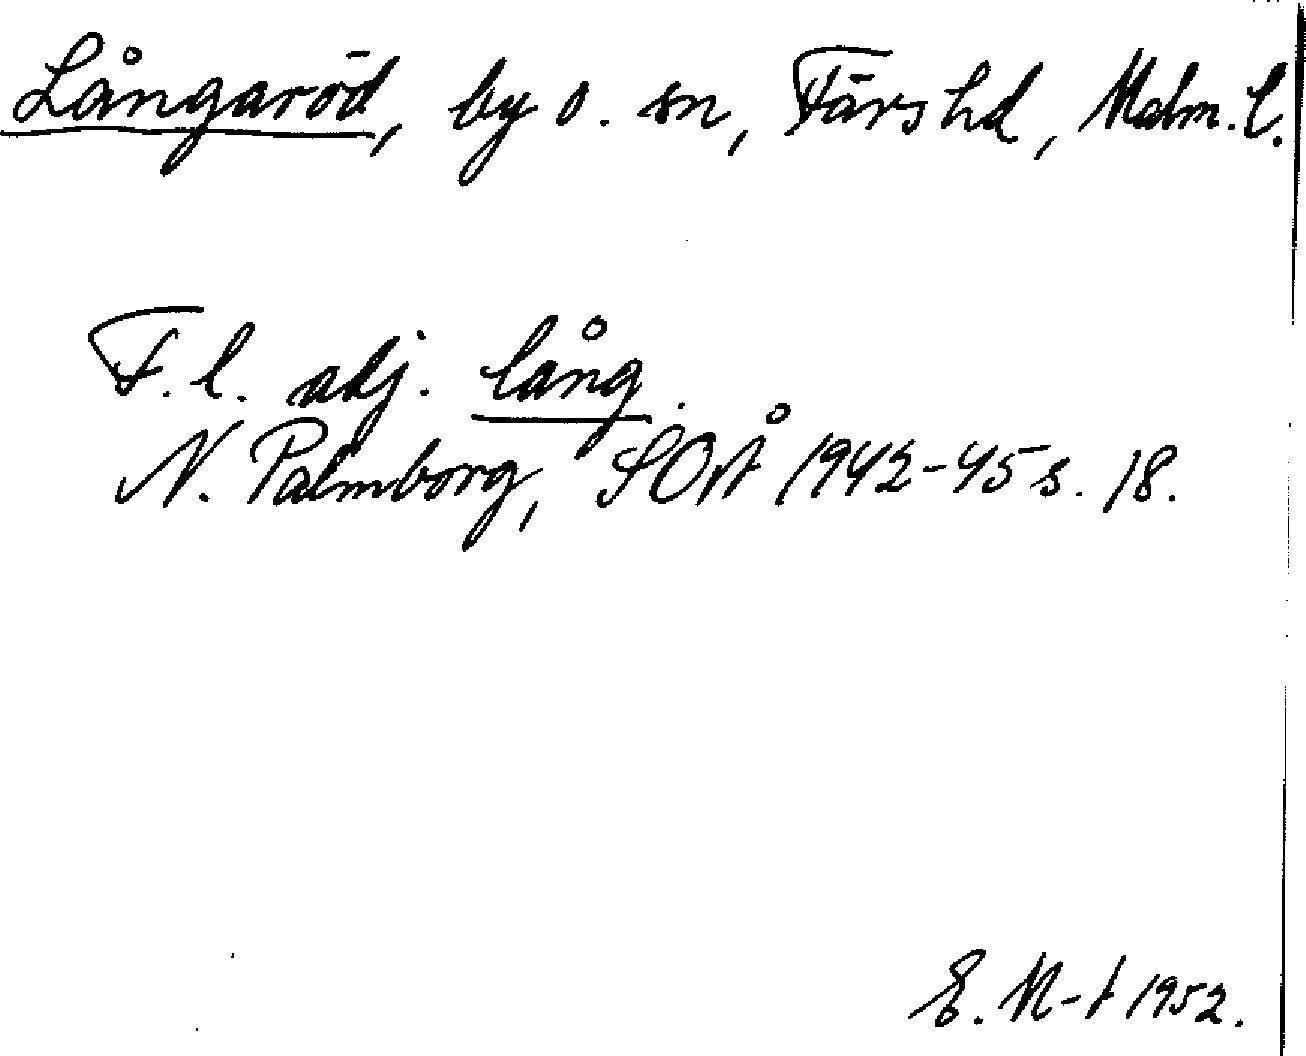 Långaröd, by o. sn, Färs hd, Malm. l.
F. l. adj. lång.
N. Palmborg, SOÅ 1942-45 s. 18.
E. N-t 1952.